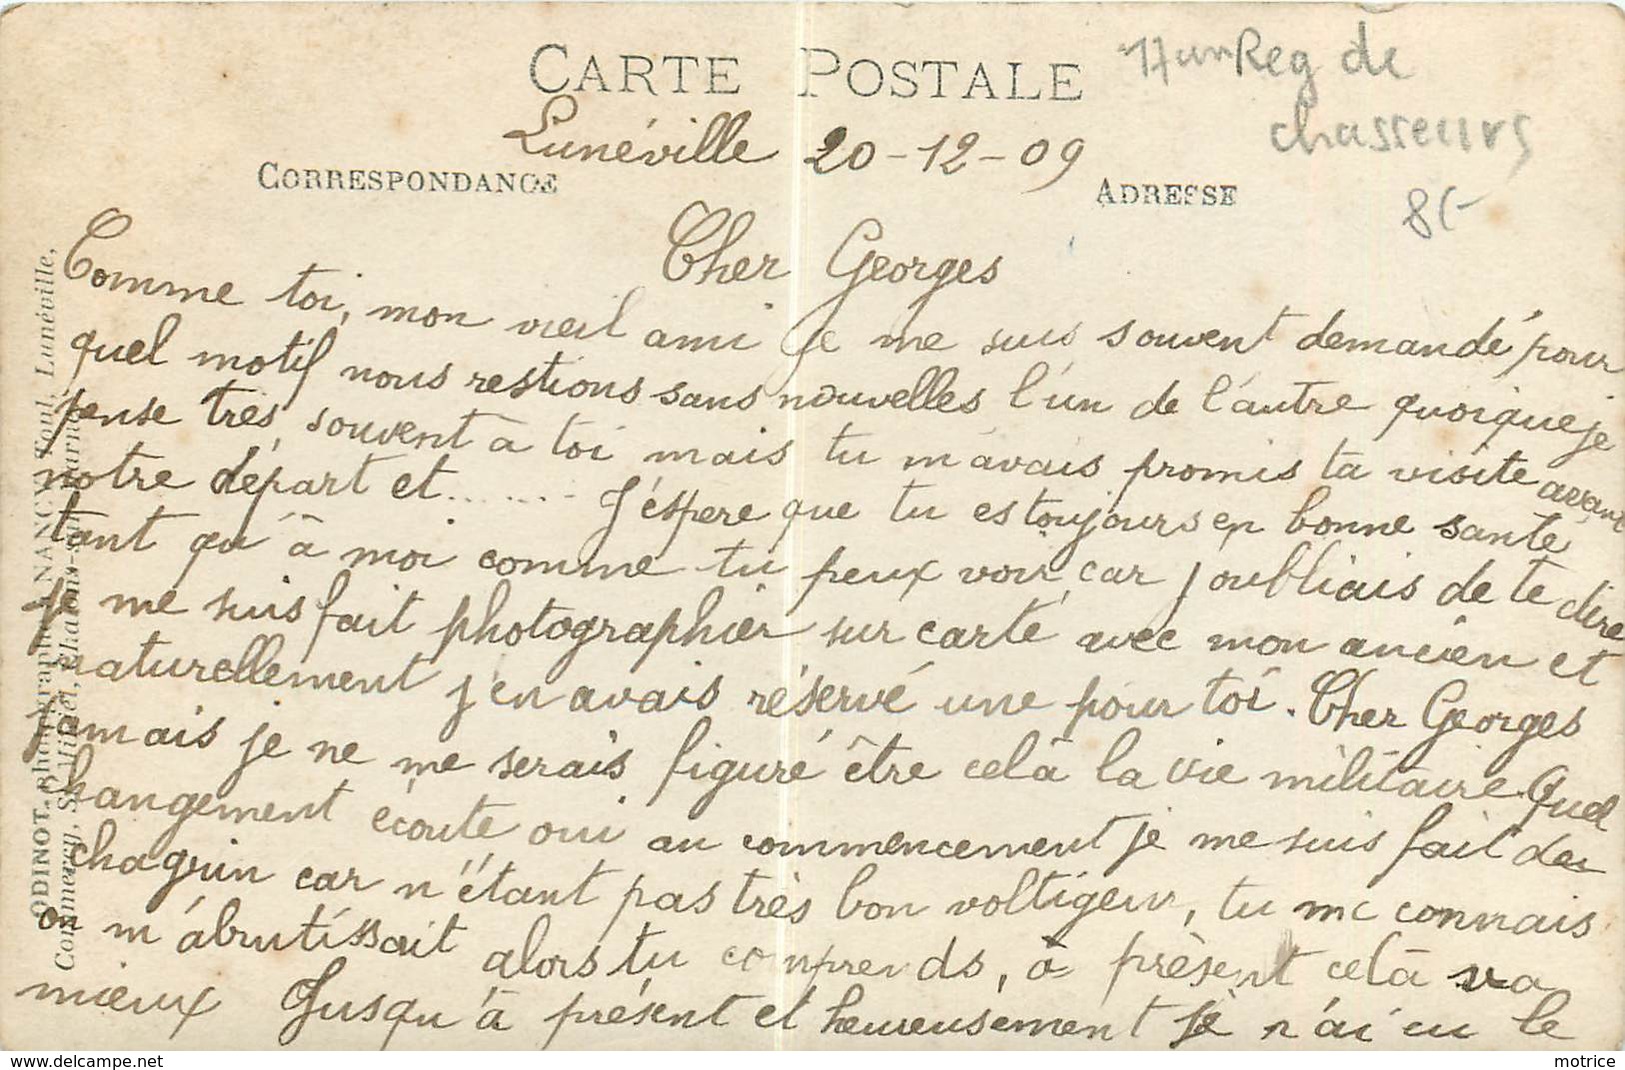 CARTE POSTALE
Reg de
chasseurs
Lunéville 20-12-09
CORRESPONDANCE
ADRESSE
Cher Georges
Comme toi, mon vieil ami je me suis souvent demandé pour
quel motif nous restions sans nouvelles l'un de l'autre quoique je
pense très souvent à toi mais tu m'avais promis ta visite avant
notre départ et....... J'éspere que tu es toujours en bonne santé
tant qu'à moi comme tu peux voir, car j'oubliais de te dire
je me suis fait photographier sur carte avec mon ancien et
naturellement j'en avais réservé une pour toi. Cher Georges
jamais je ne me serais figuré être celà la vie militaire. Quel
changement écoute oui au commencement je me suis fait du
chagrin car n'étant pas très bon voltigeur, tu me connais
on m'abrutissait alors tu comprends, à présent celà va
mieux Jusqu'à présent et heureusement je n'ai eu le
ODINOT, photographe, NANCY, Toul, Lunéville,
Commercy, St-Mihiel, Chalons-sur-Marne
motrice